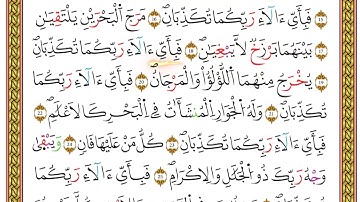 فَبِأَىِّ ءَالَآءِ رَبِّكُمَا تُكَذِّبَانِ ۝١٨ مَرَجَ ٱلْبَحْرَيْنِ يَلْتَقِيَانِ
بَيْنَهُمَا بَرْزَخٌ لَّا يَبْغِيَانِ فَبِأَىِّ ءَالَآءِ رَبِّكُمَا تُكَذِّبَانِ
يَخْرُجُ مِنْهُمَا ٱللُّؤْلُؤُ وَٱلْمَرْجَانُ فَبِأَىِّ ءَالَآءِ رَبِّكُمَا
تُكَذِّبَانِ وَلَهُ ٱلْجَوَارِ ٱلْمُنشَـَٔاتُ فِى ٱلْبَحْرِ كَٱلْأَعْلَٰمِ
فَبِأَىِّ ءَالَآءِ رَبِّكُمَا تُكَذِّبَانِ كُلُّ مَنْ عَلَيْهَا فَانٍ وَيَبْقَىٰ
وَجْهُ رَبِّكَ ذُو ٱلْجَلَٰلِ وَٱلْإِكْرَامِ فَبِأَىِّ ءَالَآءِ رَبِّكُمَا